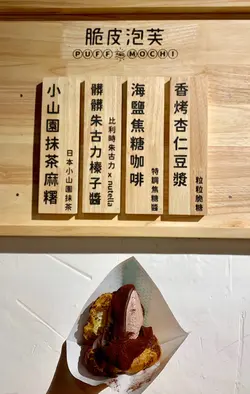 脆皮泡芙
PUFF MOCHI
香烤杏仁豆漿
粒粒脆糖
海鹽焦糖咖啡
特調焦糖醬
髒髒朱古力榛子醬
比利時朱古力 x nutella
小山園抹茶麻糬
日本小山園抹茶